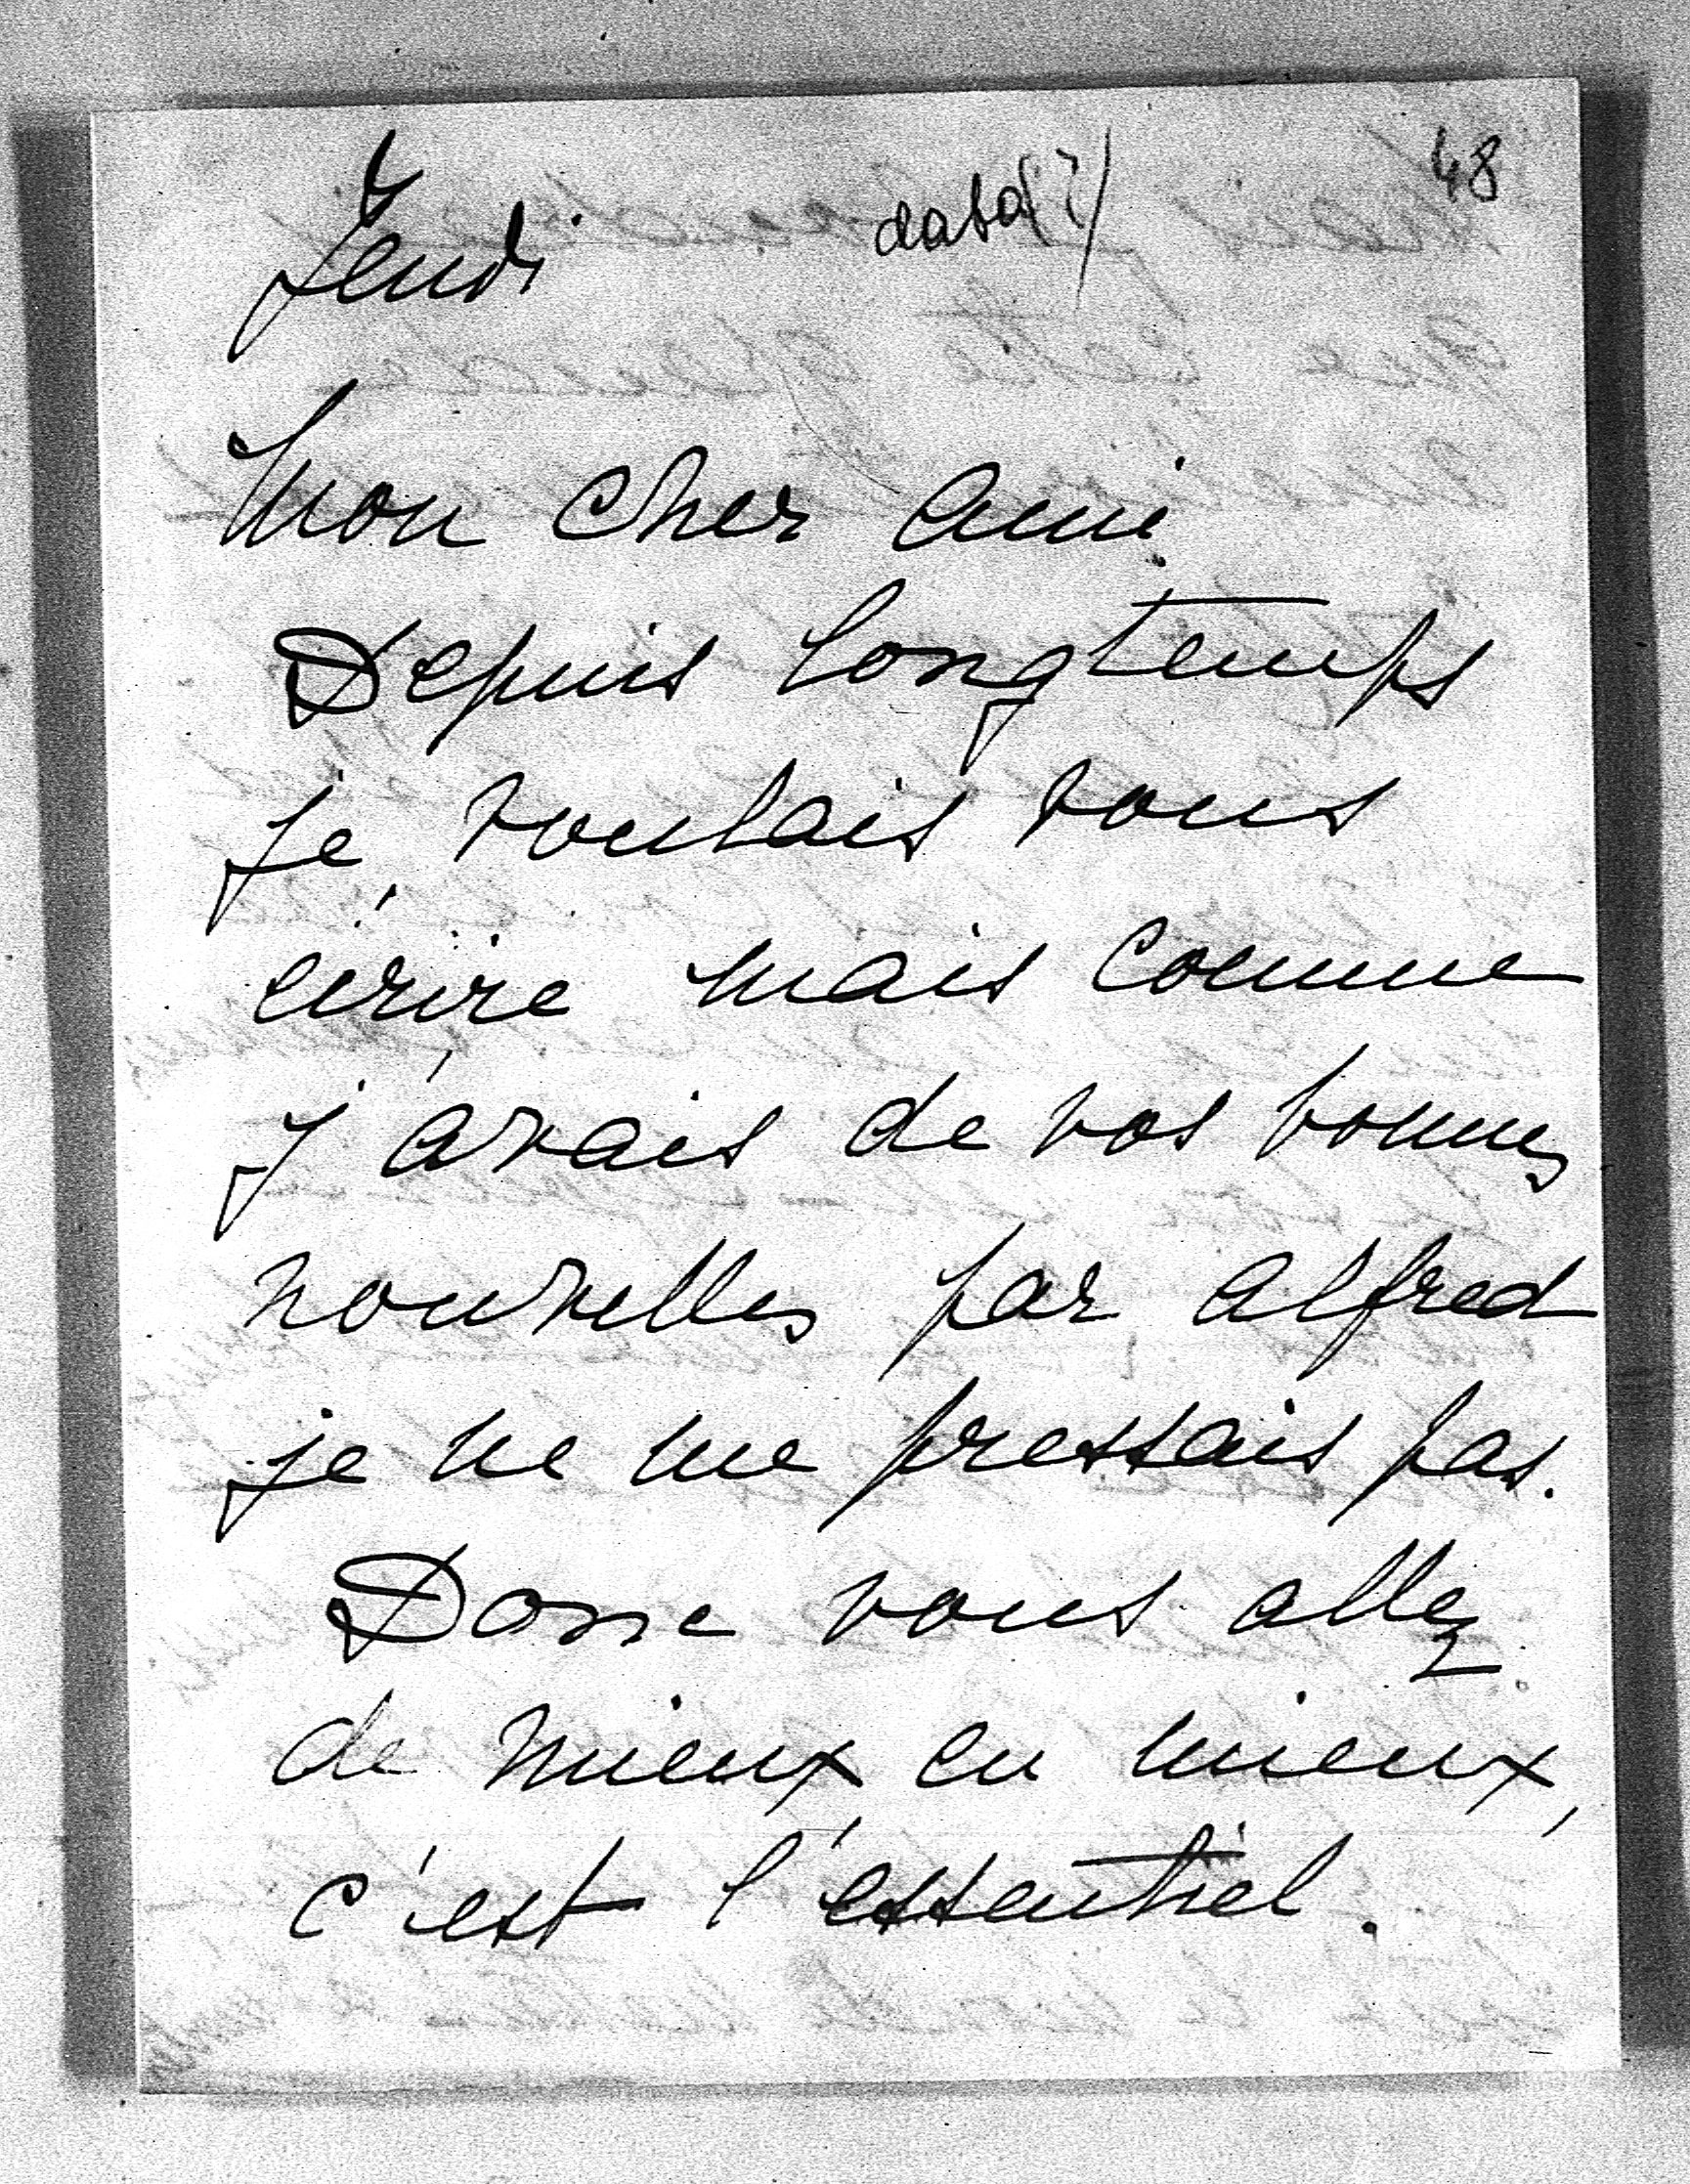 Jeudi data(?) 48
Mon cher ami
Depuis longtemps
je voulais vous
écrire mais comme
j'avais de vos bonnes
nouvelles par Alfred
je ne me pressais pas.
Donc vous allez
de mieux en mieux,
c'est l'essentiel.